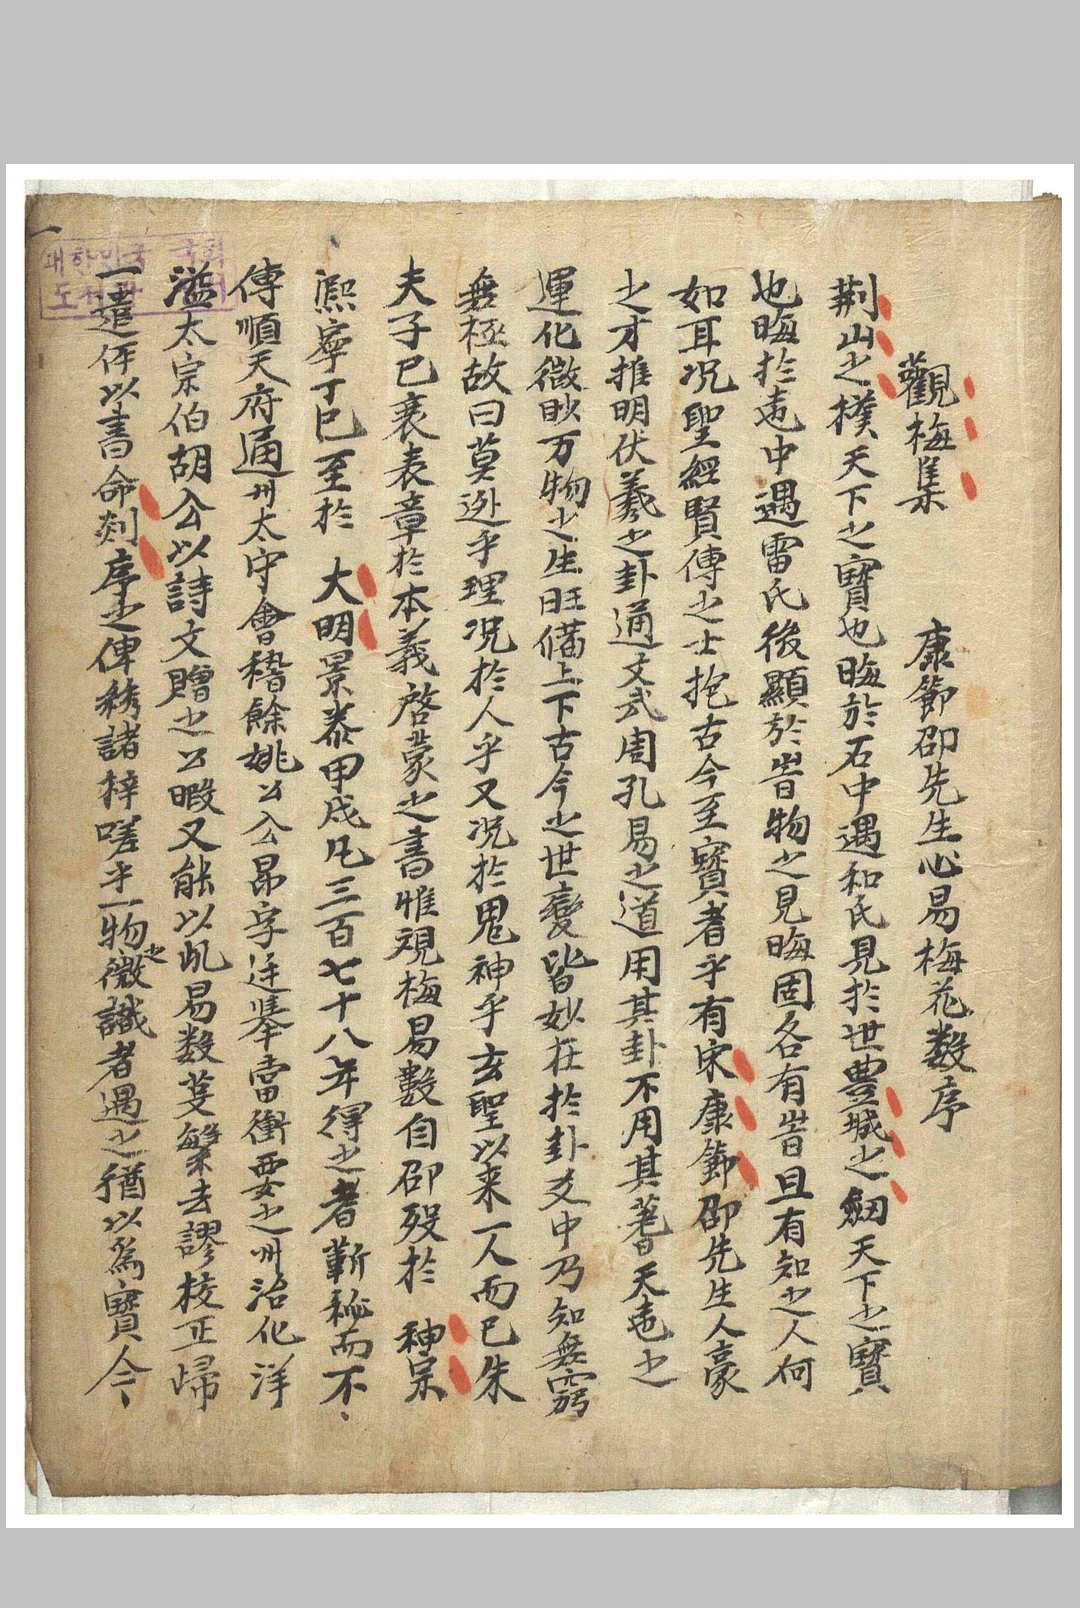 觀梅集 康節邵先生心易梅花数序
荆山之樸天下之寶也晦於石中遇和氏見於世豊城之劔天下之寶
也晦於中遇雷氏後顯於旹物之見晦固各有旹且有知之人何
如耳况聖經賢傳之士抱古今至寶者乎有宋康節邵先生人豪
之才推明伏羲之卦通文武周孔易之道用其卦不用其蓍天之
運化微眇万物之生旺備上下古今之世變皆妙在於卦爻中乃知無窮
無極故曰莫逃乎理况於人乎又况於鬼神乎玄聖以来一人而已朱
夫子已裒表章於本義啓蒙之書惟視梅易數自邵歿於 神宗
熈寧丁巳至於 大明景泰甲戌凡三百七十八年得之者蘄秘而不
傳順天府通州太守會稽餘姚公昂字廷舉當衝要之州治化洋
溢太宗伯胡公以詩文贈之公暇又能以此易数芟繁去謬校正歸
一遣伻以書命剡序之俾綉諸梓嗟乎一物之微識者遇之猶以爲寶今
대한민국 국회
도서관